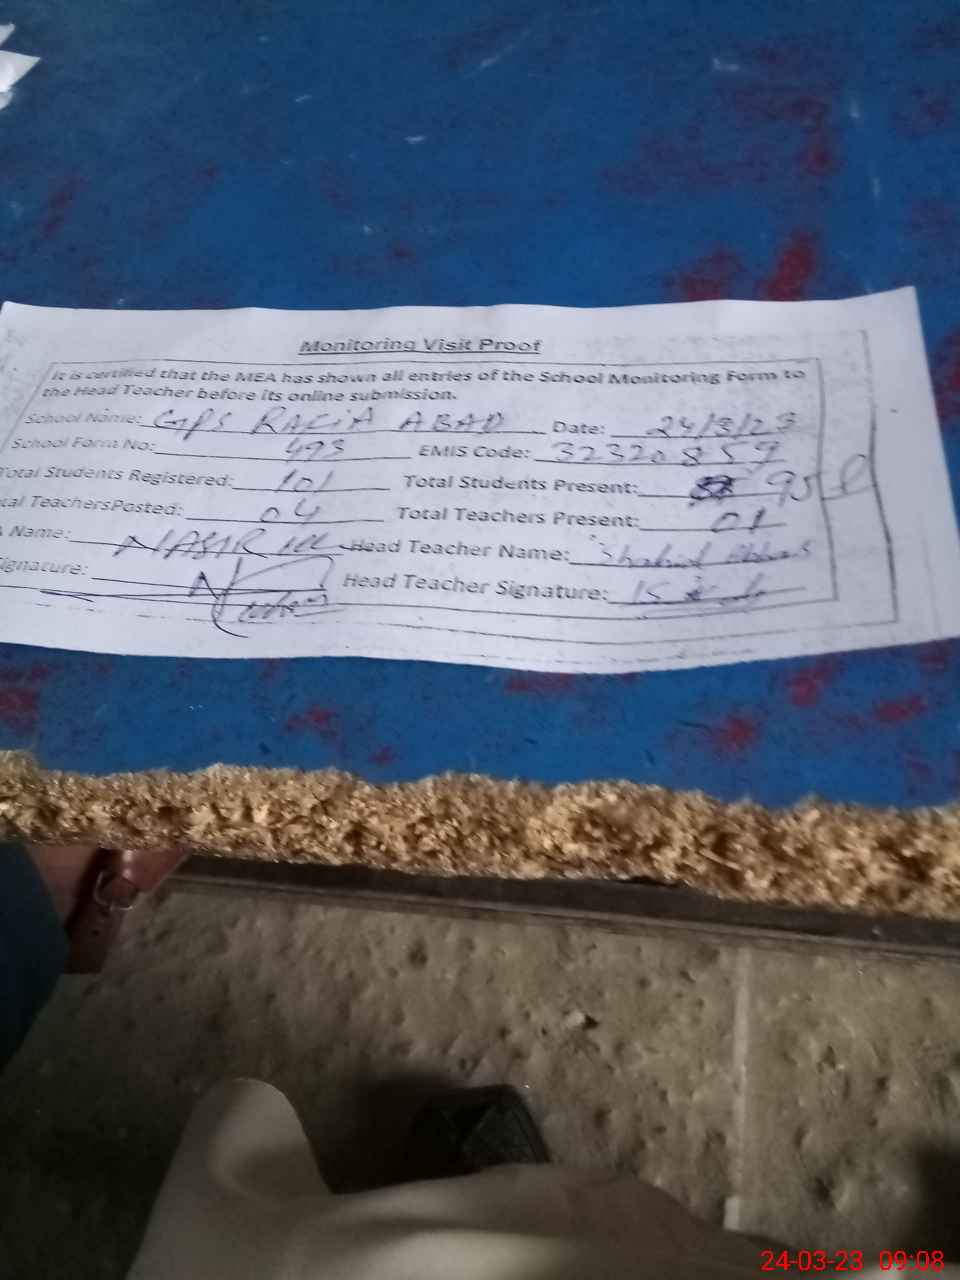 Monitoring Visit Proof
It is certified that the MEA has shown all entries of the School Monitoring Form to
the Head Teacher before its online submission.
School Name: GPS Date: 24/3/23
School Form No: 493 EMIS Code: 32320859
Total Students Registered: 101 Total Students Present: 95
TeachersPosted: 04 Total Teachers Present: 01
Name: NASIR Head Teacher Name: Shahid Abbas
Head Teacher Signature:
24-03-23 09:08